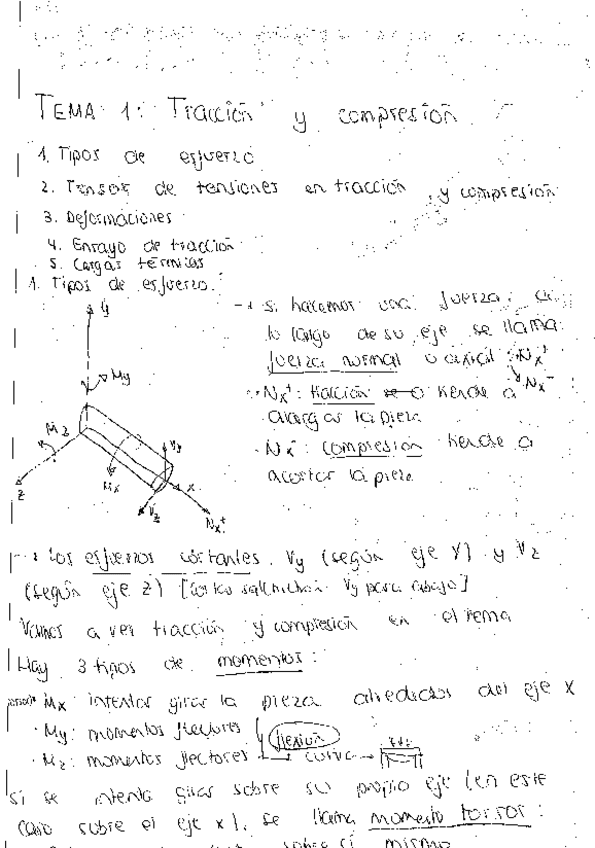 TEMA 1: Tracción y compresión
1. Tipos de esfuerzo
2. Tensor de tensiones en tracción y compresión
3. Deformaciones
4. Ensayo de tracción
5. Cargas térmicas
1. Tipos de esfuerzo.
y
My
Mz
z
Mx
Vy
x
Vz
Nx+
si hacemos una fuerza a
lo largo de su eje se llama
fuerza normal o axial Nx+
Nx-
Nx+: tracción o tiende a
alargar la pieza
Nx-: compresión tiende a
acortar la pieza
los esfuerzos cortantes. Vy (según eje Y) y Vz
(según eje z) [corta salchichón Vy para abajo]
Vamos a ver tracción y compresión en el tema
Hay 3 tipos de momentos:
Mx intentar girar la pieza alrededor del eje X
· My: momentos flectores
flexión
· Mz: momentos flectores
curva
si se intenta girar sobre su propio eje (en este
caso sobre el eje x), se llama momento torsor:
sobre sí mismo